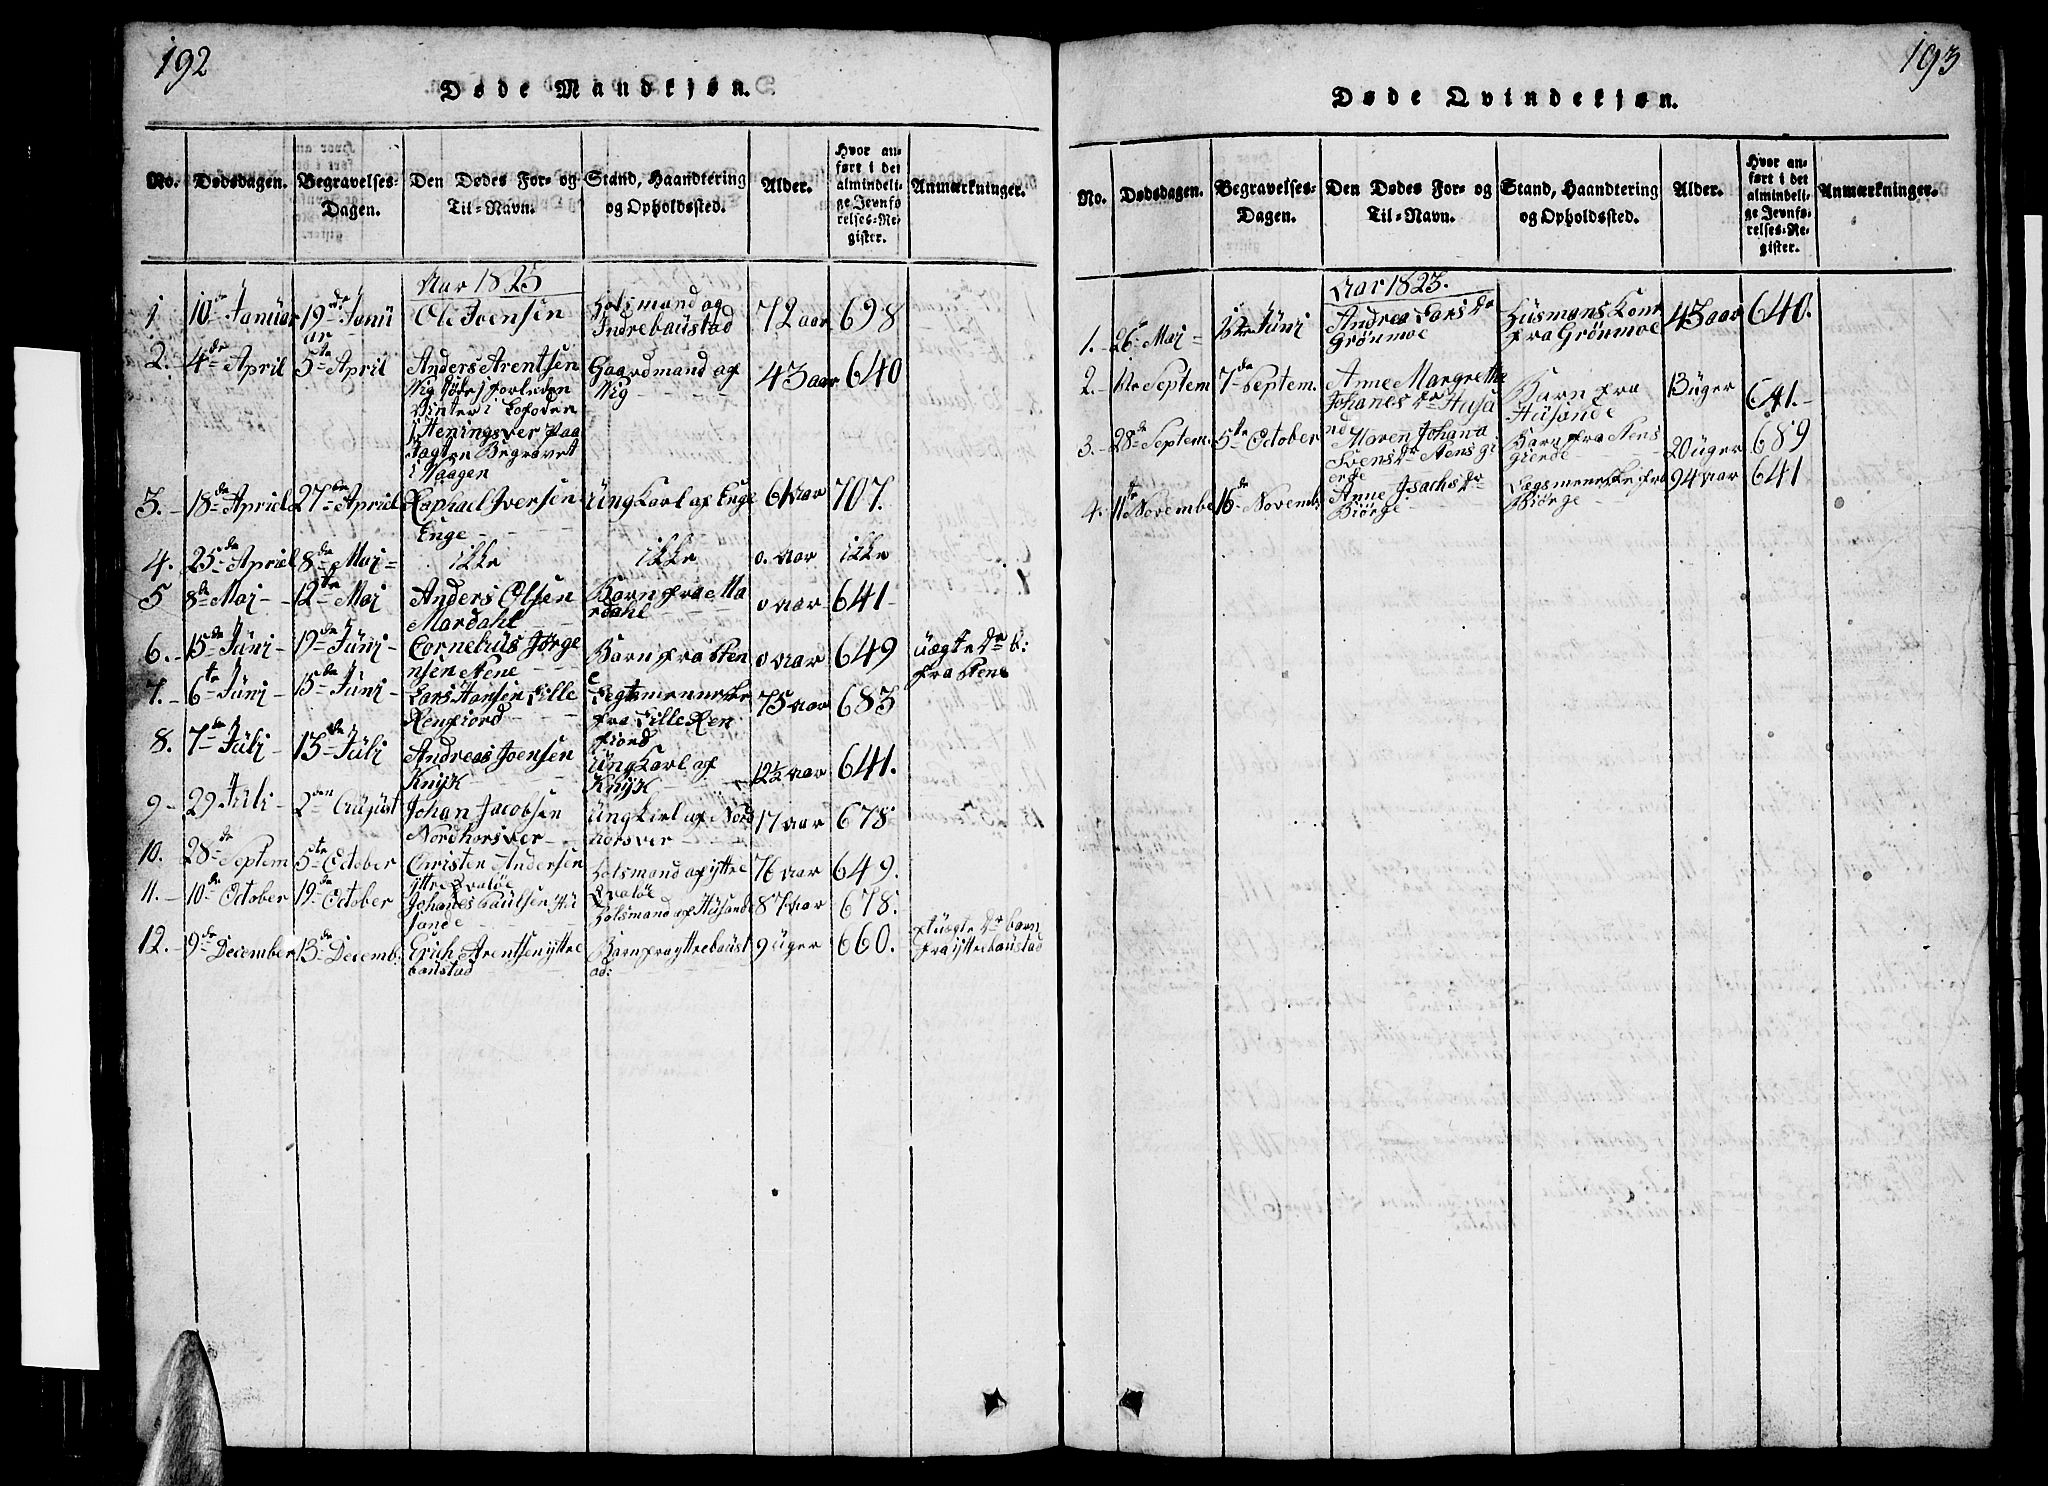 192
Døde Mandkjøn.
No.
Dødsdagen.
Begravelses-
Dagen.
Den Dødes For- og
Til-Navn.
Stand, Haandtering
og Opholdssted.
Alder.
Hvor an-
ført i det
almindeli-
ge Jevnfø
relses-Re-
gister.
Anmærkninger.
Aar 1825
1 10de Januar 19de Janu
ar
Ole Joensen
Indrebaustad
72 aar 698
2. 4de April 5te April
Anders Arentsen
Vig forleden
Vinter i Lofoden
Begravet
i Vaagen
Gaardmand af
Vig
43 aar 640
3. 18de Apriel 27de Apriel
Raphael Iversen
Enge
Ung Karl af Enge
61 aar 707.
4. 25de Apriel 8de Mai
ikke
ikke
0. aar ikke
5 8de Mai 12te Mai
Anders Olsen
Mardahl
Barn fra Ma
rdahl
0 aar 641
6. 15de Juni 19de Juni
Cornelius Jørge
nsen Stene
Barn fra Sten
e
0 aar 649
uægte
fra Stene
7. 6te Juni 15de Juni
Lars Hansen Lille
Renfiord
Legtsmenneske
fra Lille Ren
fiord
75 aar 683
8. 7de Juli 13de Juli
Andreas Joensen
Knyk
Ung Karl af
Knyk
12½ aar 641.
9 29 Juli 2den August
Johan Jacobsen
Nordhorsver
Ung Karl af Nord
horsver
17 aar 678
10. 28de Septem 5te October
Christen Andersen
yttre Qvaløe
af yttre
Qvaløe
76 aar 649.
11. 10de October 19de October
Johanes Paulsen Hu
sande
af Husande
87 aar 678.
12. 9de December 13de Decemb.
Erich Arentsen yttre
baustad
Barn fra yttrebaust
ad:
9 uger 660.
barn
fra yttrebaustad
193
Døde Qvindekjøn.
No.
Dødsdagen.
Begravelses-
Dagen.
Den Dødes For- og
Til-Navn.
Stand, Haandtering
og Opholdssted.
Alder.
Hvor an-
ført i det
almindeli-
ge Jevnfø-
relses-Re-
gister.
Anmærkninger.
Aar 1825.
1. 26 Mai Juni
Andrea Larsdr
Grønmoe
Husmans Kone
fra Grønmoe
43 aar 640.
2. Septem 7de Septem.
Anne Margrethe
Johanesdr Husa
nd
Barn fra
Husande
13 uger 641.
3. 28de Septem. 5te October
Maren Johana
Svensdr Stensgi
erde
Barn fra Stens
gierde
20 uger 689
4. 11te Novembe 16de Novemb
Anne Isachsdr
Biørge
Lægsmenneske fra
Biørge
94 aar 641